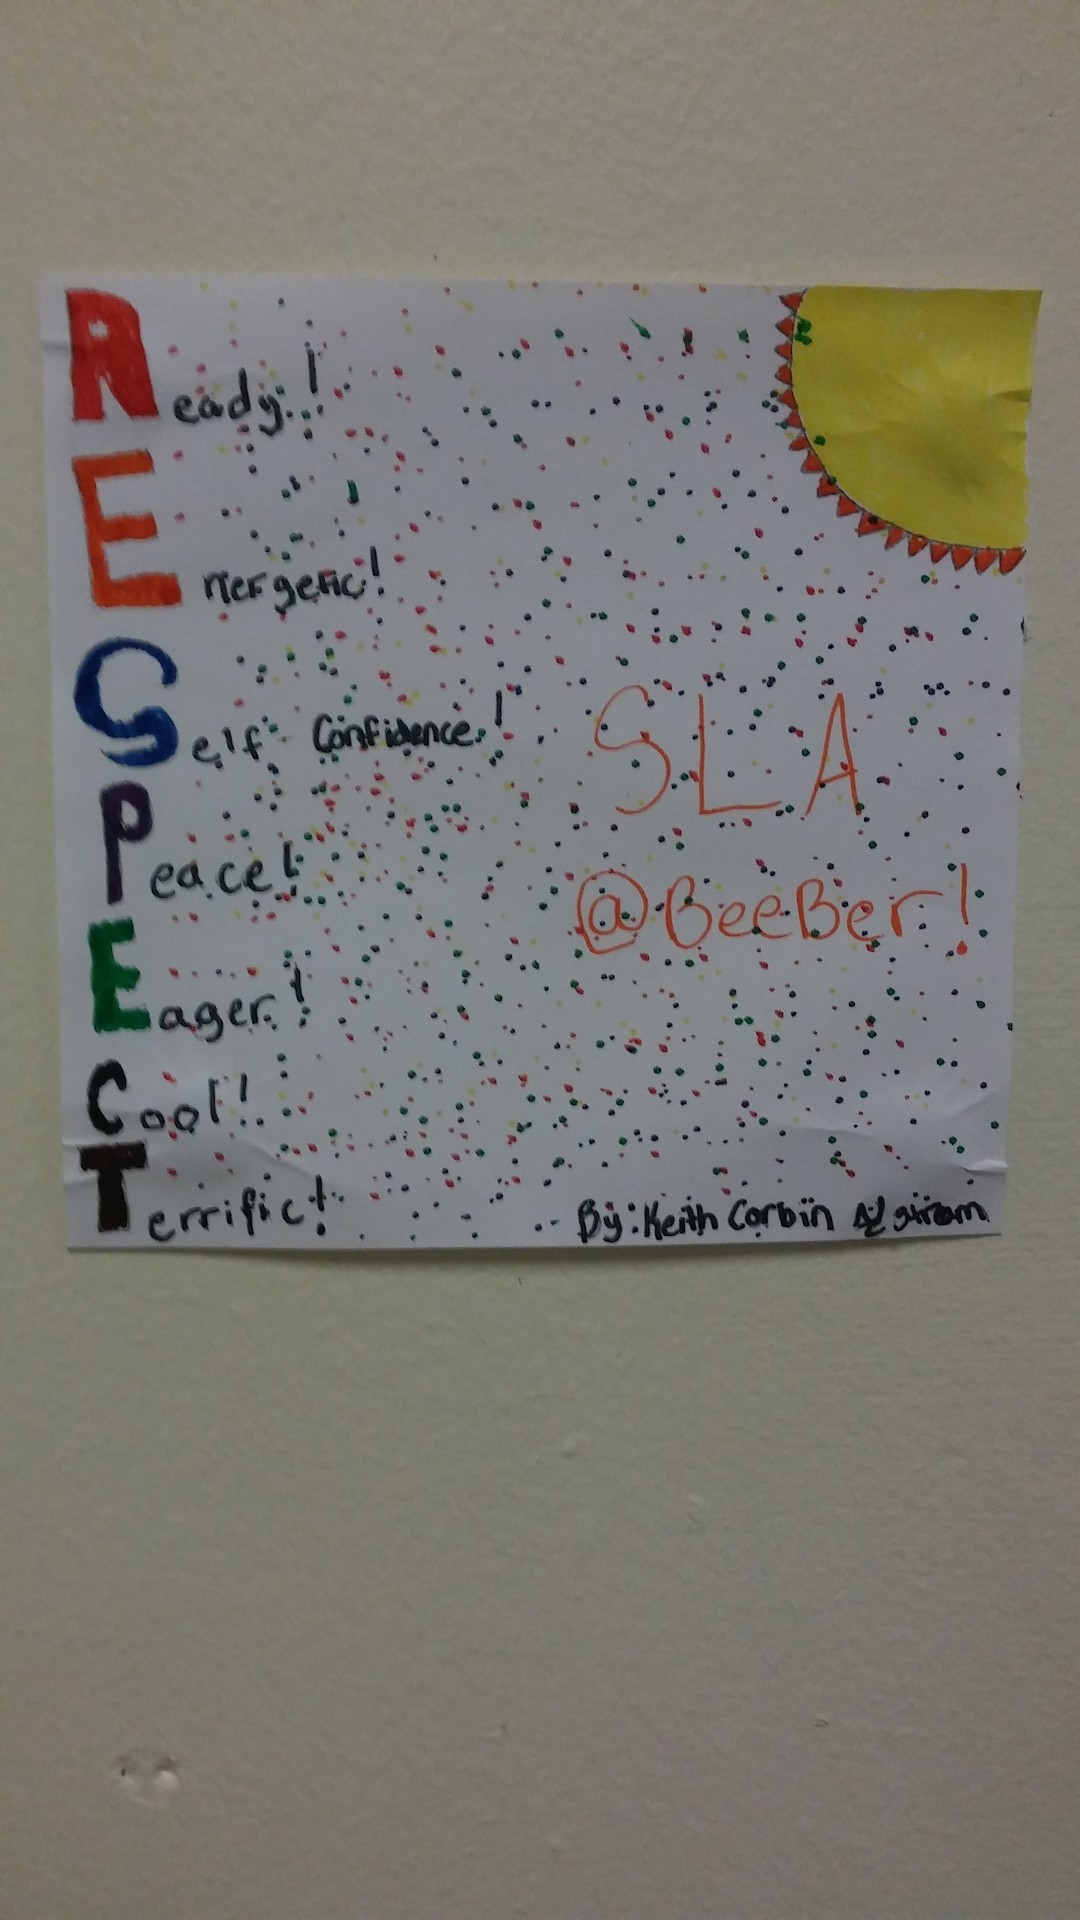 Ready!
Energetic!
Self Confidence!
Peace!
Eager!
Cool!
Terrific!
SLA
@BeeBer!
By: Keith Corbin stream